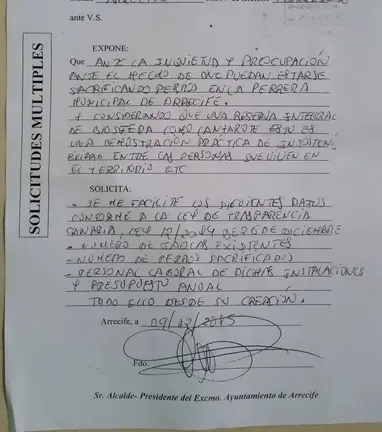 ante V.S.
SOLICITUDES MULTIPLES
EXPONE:
Que ANTE LA INQUIETUD Y PREOCUPACIÓN
ANTE EL HECHO DE QUE PUEDAN ESTARSE
SACRIFICANDO PERROS EN LA PERRERA
MUNICIPAL DE ARRECIFE.
Y CONSIDERANDO QUE UNA RESERVA INTEGRAL
DE BIOSFERA COMO LANZAROTE ESTO ES
UNA DEMOSTRACIÓN PRÁCTICA DE INSOSTENI
BILIDAD ENTRE LAS PERSONAS QUE VIVEN EN
EL TERRITORIO ETC
SOLICITA:
- SE ME FACILITE LOS SIGUIENTES DATOS
CONFORME A LA LEY DE TRASPARENCIA
CANARIA, LEY 12/2014 DE 26 DE DICIEMBRE
- NUMERO DE JAULAS EXISTENTES
- NUMERO DE PERROS SACRIFICADOS
- PERSONAL LABORAL DE DICHAS INSTALACIONES
Y PRESUPUESTO ANUAL
TODO ELLO DESDE SU CREACIÓN.
Arrecife, a 09/03/2015
Fdo.
Sr. Alcalde- Presidente del Excmo. Ayuntamiento de Arrecife